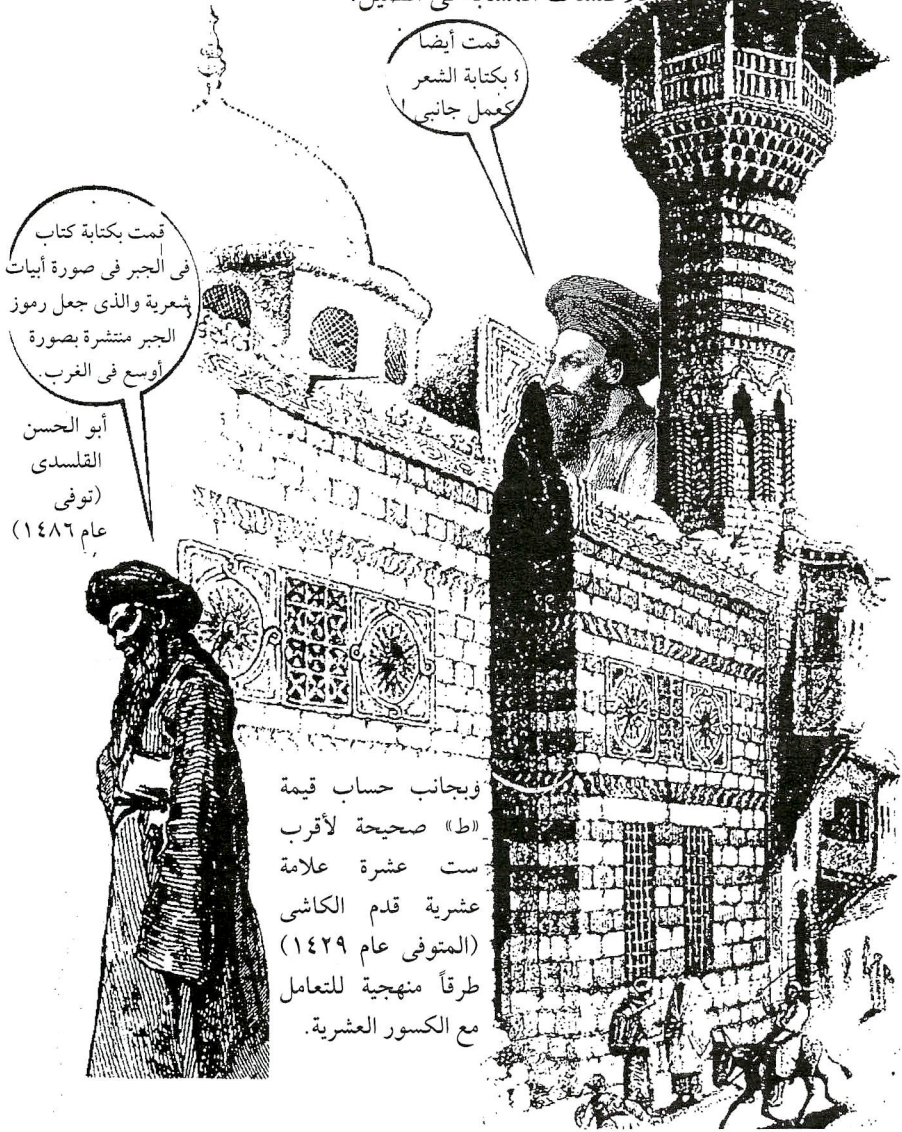 المثلث فى التمثيل.
قمت أيضا
بكتابة الشعر
كعمل جانبى !
قمت بكتابة كتاب
فى الجبر فى صورة أبيات
شعرية والذى جعل رموز
الجبر منتشرة بصورة
أوسع فى الغرب.
أبو الحسن
القلسدى
(توفى
عام ١٤٨٦)
وبجانب حساب قيمة
«ط» صحيحة لأقرب
ست عشرة علامة
عشرية قدم الكاشى
(المتوفى عام ١٤٢٩)
طرقاً منهجية للتعامل
مع الكسور العشرية.